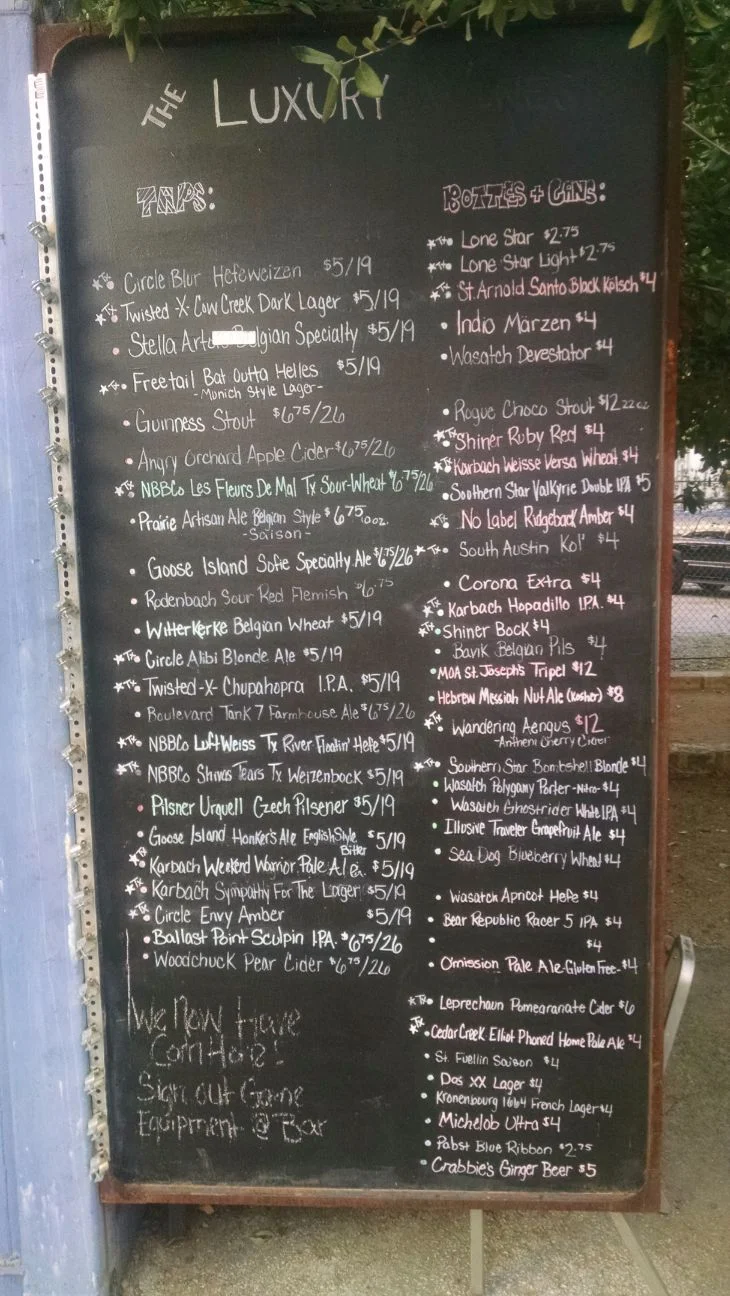 THE LUXURY
TAPS:
★TX• Circle Blur Hefeweizen $5/19
★TX• Twisted -X- Cow Creek Dark Lager $5/19
• Stella Specialty $5/19
★TX• Freetail Bat Outta Helles $5/19
-Munich Style Lager-
• Guinness Stout $6.75/26
• Angry Orchard Apple Cider $6.75/26
★TX• NBBCo Les Fleurs De Mal Tx Sour-Wheat $6.75/26
• Prairie Artisan Ale Belgian Style $6.75 10oz.
-Saison-
• Goose Island Sofie Specialty Ale $6.75/26
• Rodenbach Sour Red Flemish $6.75
• Witterkerke Belgian Wheat $5/19
★TX• Circle Alibi Blonde Ale $5/19
★TX• Twisted -X- Chupahopra I.P.A. $5/19
• Boulevard Tank 7 Farmhouse Ale $6.75/26
★TX• NBBCo LuftWeiss Tx River Floatin' Hefe $5/19
★TX• NBBCo Shivas Tears Tx Weizenbock $5/19
• Pilsner Urquell Czech Pilsener $5/19
• Goose Island Honker's Ale English Style Bitter $5/19
★TX• Karbach Weekend Warrior Pale Ale $5/19
★TX• Karbach Sympathy For The Lager $5/19
★TX• Circle Envy Amber $5/19
• Ballast Point Sculpin I.P.A. $6.75/26
• Woodchuck Pear Cider $6.75/26
We Now Have
Corn Hole!
Sign out Game
Equipment @ Bar
BOTTLES + CANS:
★TX• Lone Star $2.75
★TX• Lone Star Light $2.75
★TX• St. Arnold Santo Black Kölsch $4
• Indio Märzen $4
• Wasatch Devestator $4
• Rogue Choco Stout $12 22oz
★TX• Shiner Ruby Red $4
★TX• Karbach Weisse Versa Wheat $4
• Southern Star Valkyrie Double IPA $5
★TX• No Label Ridgeback Amber $4
★TX• South Austin Kol' $4
• Corona Extra $4
★TX• Karbach Hopadillo I.P.A. $4
★TX• Shiner Bock $4
• Bank Belgian Pils $4
• MOA St. Joseph's Tripel $12
• Hebrew Messiah Nut Ale (Kosher) $8
★TX• Wandering Aengus $12
-Anthem Cherry Cider
★TX• Southern Star Bombshell Blonde $4
• Wasatch Polygamy Porter -Nitro- $4
• Wasatch Ghostrider White IPA $4
• Illusive Traveler Grapefruit Ale $4
• Sea Dog Blueberry Wheat $4
• Wasatch Apricot Hefe $4
• Bear Republic Racer 5 IPA $4
• $4
• Omission Pale Ale -Gluten Free- $4
★TX• Leprechaun Pomegranate Cider $6
★TX• Cedar Creek Elliot Phoned Home Pale Ale $4
• St. Fuellin Saison $4
• Dos XX Lager $4
• Kronenbourg 1664 French Lager $4
• Michelob Ultra $4
• Pabst Blue Ribbon $2.75
• Crabbie's Ginger Beer $5